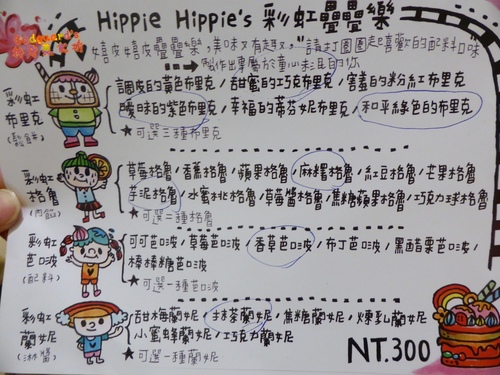 Hippie Hippie's 彩虹疊疊樂
嬉皮嬉皮疊疊樂,美味又有趣,"請打圈圈起喜歡的配料口味
製作出專屬於童心彩虹的你
彩虹布里克(鬆餅)
調皮的黃色布里克/甜蜜的巧克布里克/害羞的粉紅布里克
曖昧的紫色布里克/幸福的蒂芬妮布里克/和平綠色的布里克
★可選三種布里克
彩虹格魯(肉餡)
草莓格魯/香蕉格魯/蘋果格魯/麻糬格魯/紅豆格魯/芒果格魯
芋泥格魯/水蜜桃格魯/草莓醬格魯/焦糖蘋果格魯/巧克力球格魯
★可選二種格魯
彩虹芭啵(配料)
可可芭啵/草莓芭啵/香草芭啵/布丁芭啵/黑醋栗芭啵/
棒棒糖芭啵
★可選一種芭啵
彩虹蘭妮(淋醬)
甜梅蘭妮/抹茶蘭妮/焦糖蘭妮/煉乳蘭妮
小蜜蜂蘭妮/巧克力蘭妮
★可選一種蘭妮
NT.300